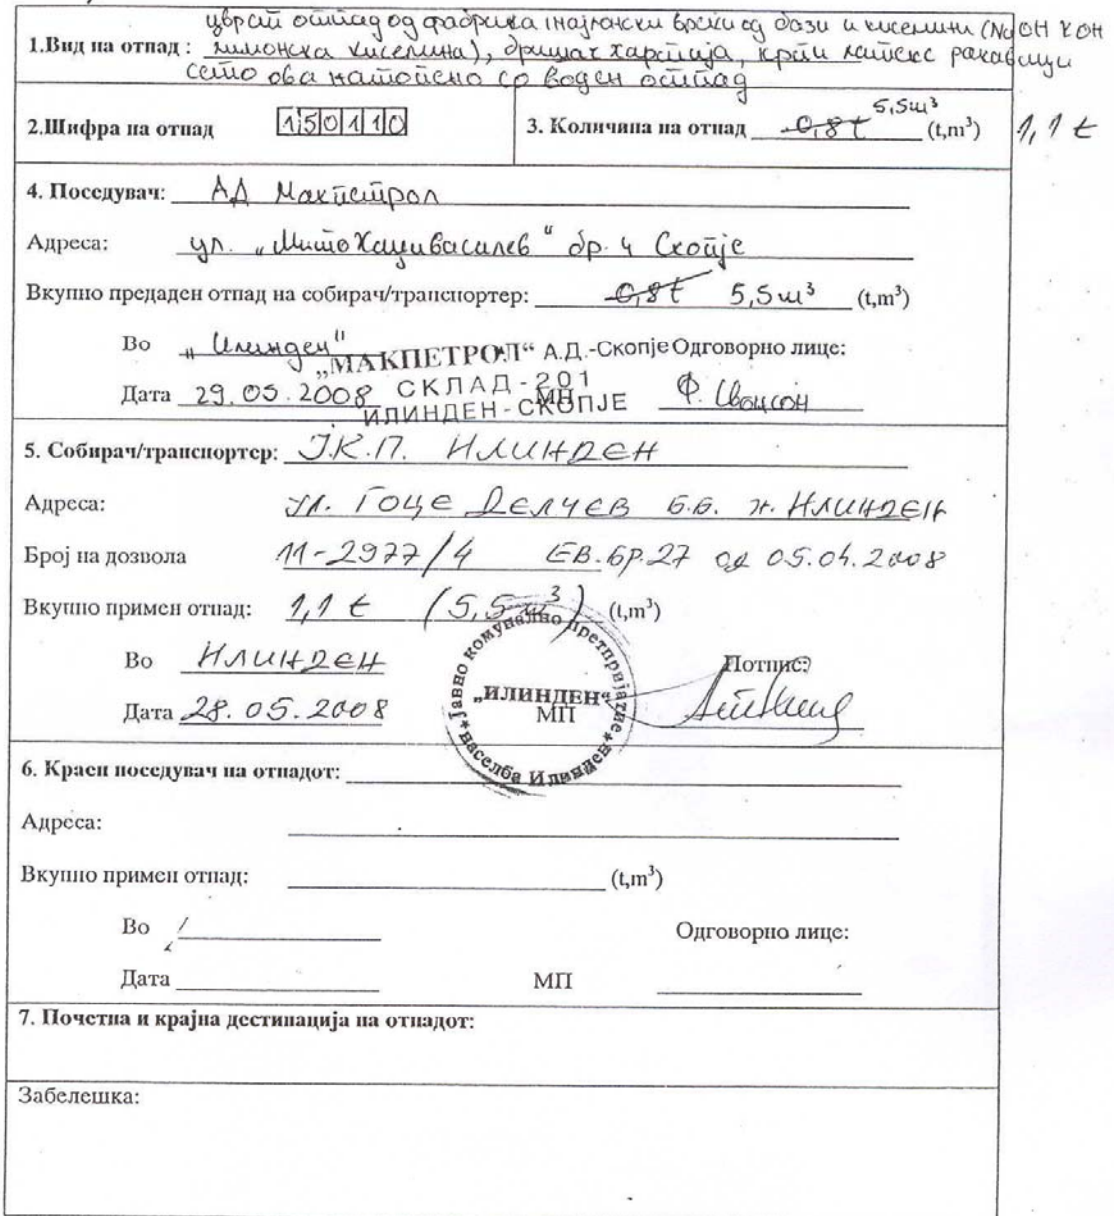 цврст отпад од фабрика (најлонски вреќи од бази и киселини (NaOH KOH
1.Вид на отпад : лимонска киселина), бришач хартија, крпи латекс ракавици
сето ова натопено со воден отпад
2.Шифра на отпад 150110
5,5 m³
3. Количина на отпад 0,8 t (t,m³) 1,1 t
4. Поседувач: АД Макпетрол
Адреса: ул. „Мито Хаџивасилев" бр. 4 Скопје
Вкупно предаден отпад на собирач/транспортер: 0,8 t 5,5 m³ (t,m³)
Во „Илинден"
„МАКПЕТРОЛ“ А.Д.-Скопје Одговорно лице:
Дата 29.05.2008 СКЛАД-201 МП
ИЛИНДЕН-СКОПЈЕ
5. Собирач/транспортер: Ј.К.П. ИЛИНДЕН
Адреса: ул. ГОЦЕ ДЕЛЧЕВ б.б. н. ИЛИНДЕН
Број на дозвола 11-2977/4 ЕВ.бр.27 од 05.04.2008
Вкупно примен отпад: 1,1 t (5,5 m³) (t,m³)
Во ИЛИНДЕН Потпис:
Дата 28.05.2008 МП
Јавно комунално претпријатие
„ИЛИНДЕН“
населба Илинден
6. Краен поседувач на отпадот:
Адреса:
Вкупно примен отпад: (t,m³)
Во Одговорно лице:
Дата МП
7. Почетна и крајна дестинација на отпадот:
Забелешка: